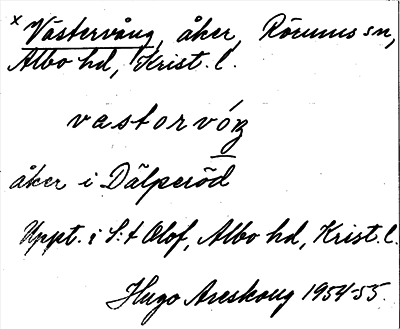 x Västervång, åker, Rörums sn,
Albo hd, Krist. l.
vastorvóŋ
åker i Dälperöd
Uppt. i S:t Olof, Albo hd, Krist. l.
Hugo Areskoug 1954-55.